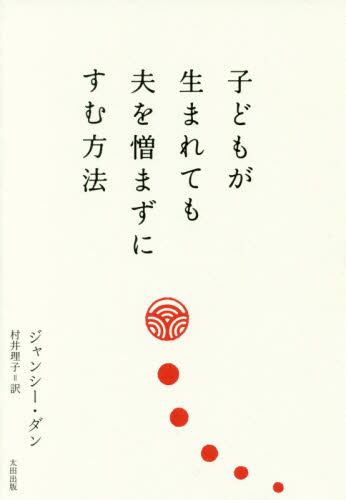 子どもが
生まれても
夫を憎まずに
すむ方法
ジャンシー・ダン
村井理子=訳
太田出版